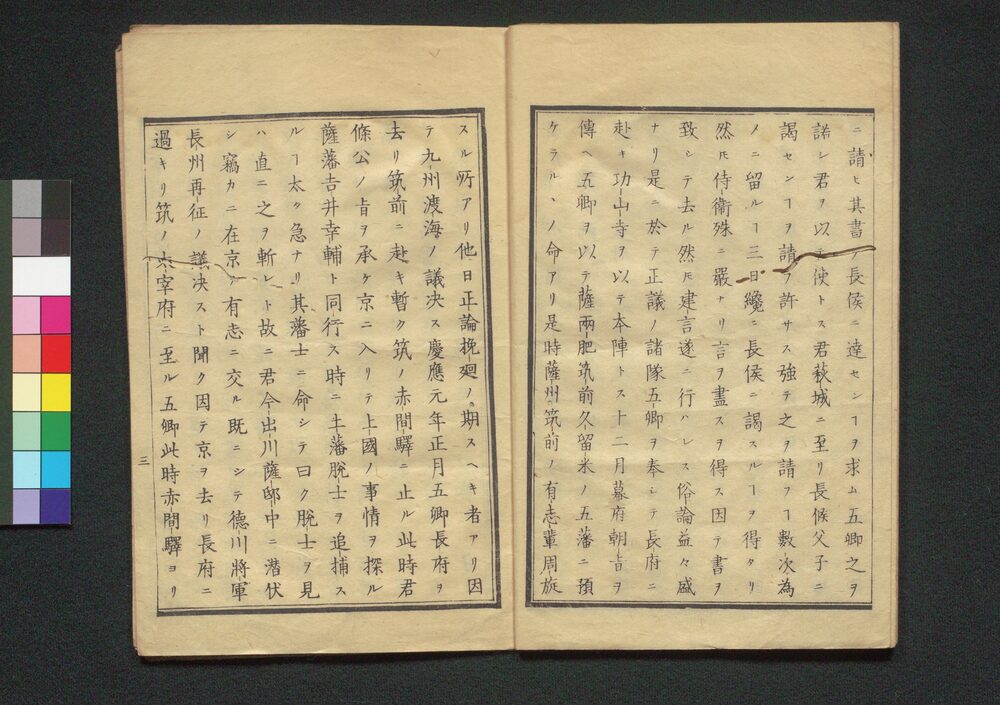 ニ請ヒ其書ヲ長侯ニ達センヿヲ求ム五卿之ヲ
諾シ君ヲ以テ使トス君萩城ニ至リ長候父子ニ
謁センヿヲ請フ許サス強テ之ヲ請フヿ數次為
メニ留ルヿ三日纔ニ長侯ニ謁スルヿヲ得タリ
然𪜈侍衛殊ニ嚴ナリ言ヲ盡スヲ得ス因テ書ヲ
致シテ去ル然𪜈建言遂ニ行ハレス俗論益々盛
ナリ是ニ於テ正議ノ諸隊五卿ヲ奉シテ長府ニ
赴キ功山寺ヲ以テ本陣トス十二月幕府朝旨ヲ
傳ヘ五卿ヲ以テ薩兩肥筑前久留米ノ五藩ニ預
ケラルヽノ命アリ是時薩州筑前ノ有志輩周旋
スル所アリ他日正論挽廻ノ期スヘキ者アリ因
テ九州渡海ノ議決ス慶應元年正月五卿長府ヲ
去リ筑前ニ赴キ暫ク筑ノ赤間驛ニ止ル此時君
條公ノ旨ヲ承ケ京ニ入リテ上國ノ事情ヲ探ル
薩藩吉井幸輔ト同行ス時ニ土藩脱士ヲ追捕ス
ルヿ太タ急ナリ其藩士ニ命シテ曰ク脱士ヲ見
ハ直ニ之ヲ斬レト故ニ君今出川薩邸中ニ潜伏
シ竊カニ在京ノ有志ニ交ル既ニシテ德川將軍
長州再征ノ議決スト聞ク因テ京ヲ去リ長府ニ
過キリ筑ノ太宰府ニ至ル五卿此時赤間驛ヨリ
三